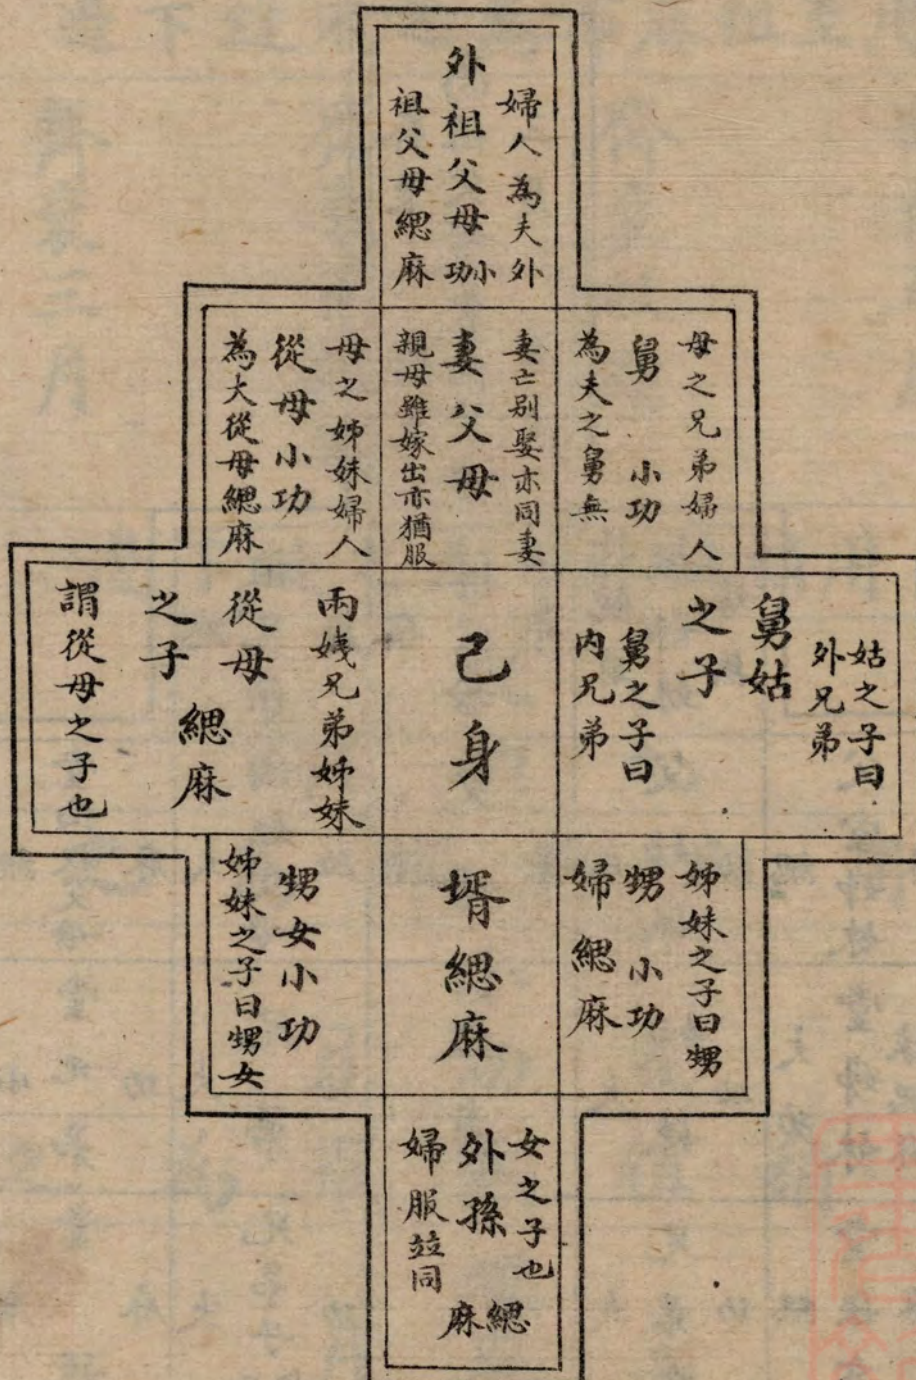 婦人為夫外
外祖父母小功
祖父母緦麻
母之兄弟婦人
舅 小功
為夫之舅無
妻亡別娶亦同妻
妻父母
親母雖嫁出亦猶服
母之姊妹婦人
從母小功
為大從母緦麻
姑之子曰
外兄弟
舅姑
之子
舅之子曰
內兄弟
己身
兩姨兄弟姊妹
從母
之子
緦麻
謂從母之子也
姊妹之子曰甥
甥 小功
婦緦麻
壻緦麻
甥女小功
姊妹之子曰甥女
女之子也
外孫
緦麻
婦服竝同